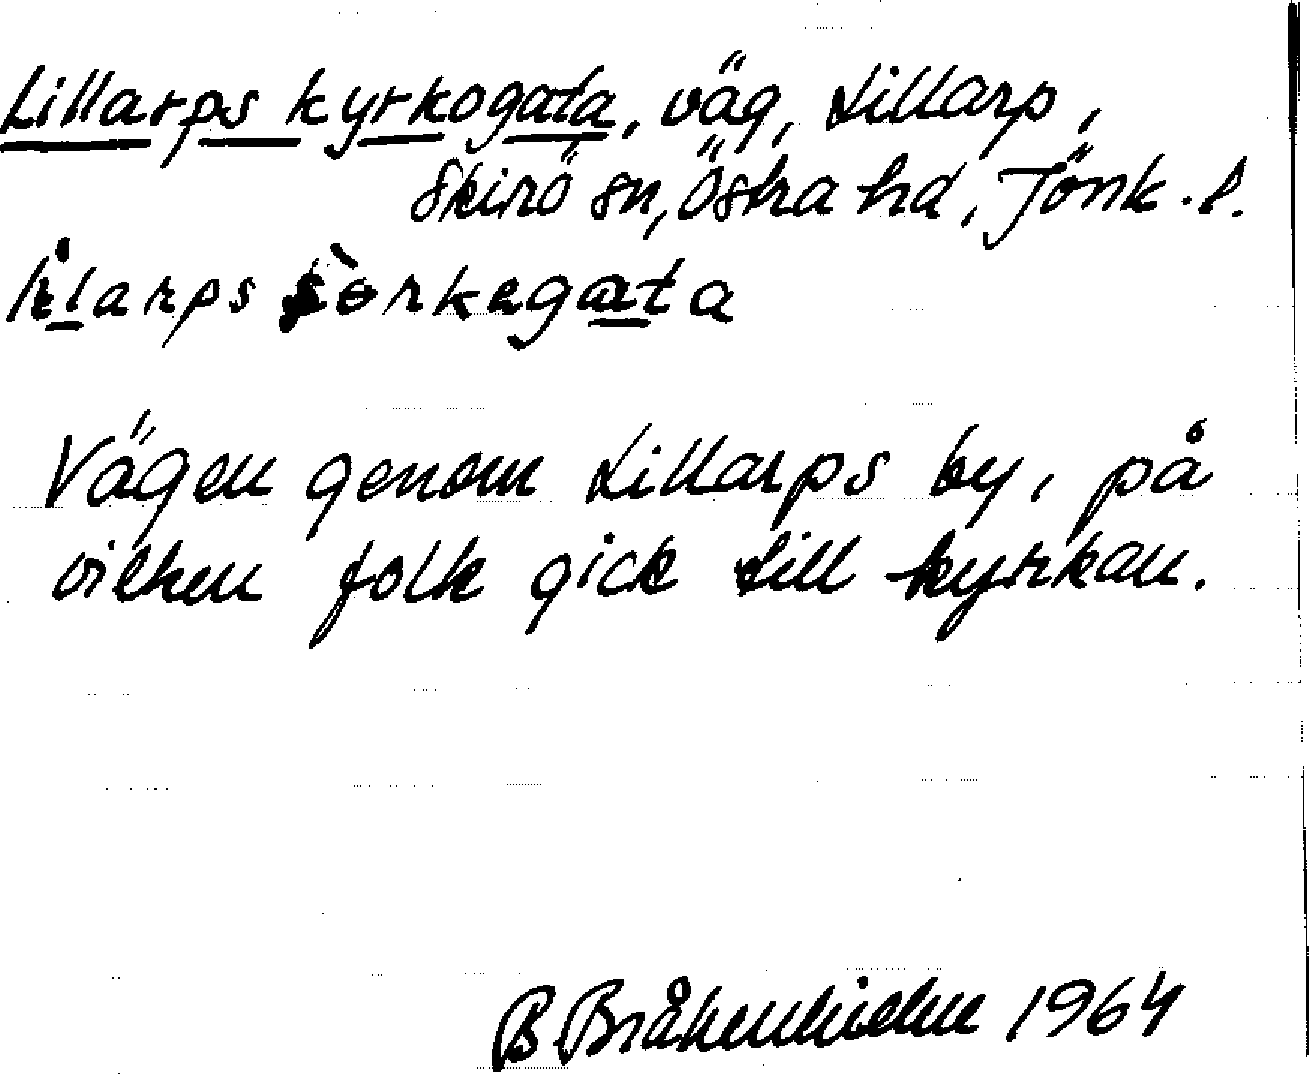 Lillarps kyrkogata, väg, Lillarp,
Skirö sn, Östra hd, Jönk. l.
Vägen genom Lillarps by, på
vilken folk gick till kyrkan.
B Bråkenhielm 1964